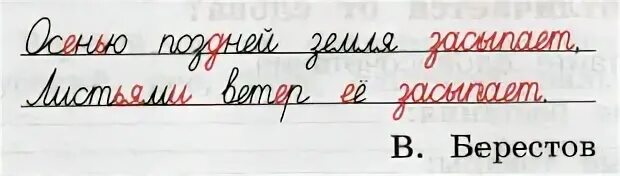 Осенью поздней земля засыпает,
Листьями ветер её засыпает.
В. Берестов